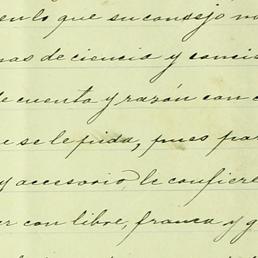 en lo que su consejo no
nas de ciencia y concie
de cuenta y razón con c
e se le pida, pues par
y accesorio, le confiere
er con libre, franca y g